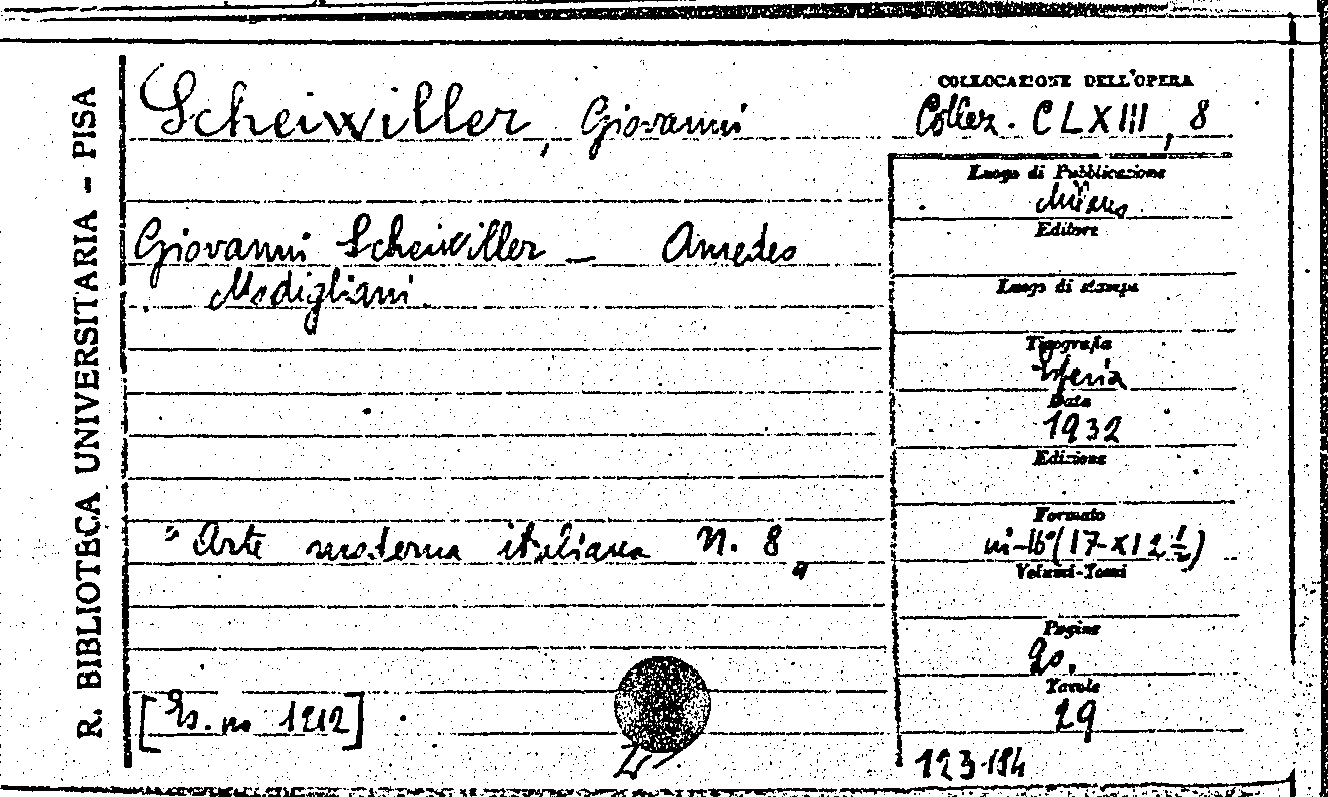 R. BIBLIOTECA UNIVERSITARIA - PISA
Scheiwiller, Giovanni
COLLOCAZIONE DELL'OPERA
Collez. CLXIII, 8
Giovanni Scheiwiller — Amedeo
Modigliani.
Luogo di Pubblicazione
Milano
Editore
Luogo di stampa
Tipografia
Esperia
Data
1932
Edizione
"Arte moderna italiana N. 8"
Formato
in-16°(17 x 12 ½)
Volumi-Tomi
Pagine
20.
Tavole
29
[Es. no 1212]
123194